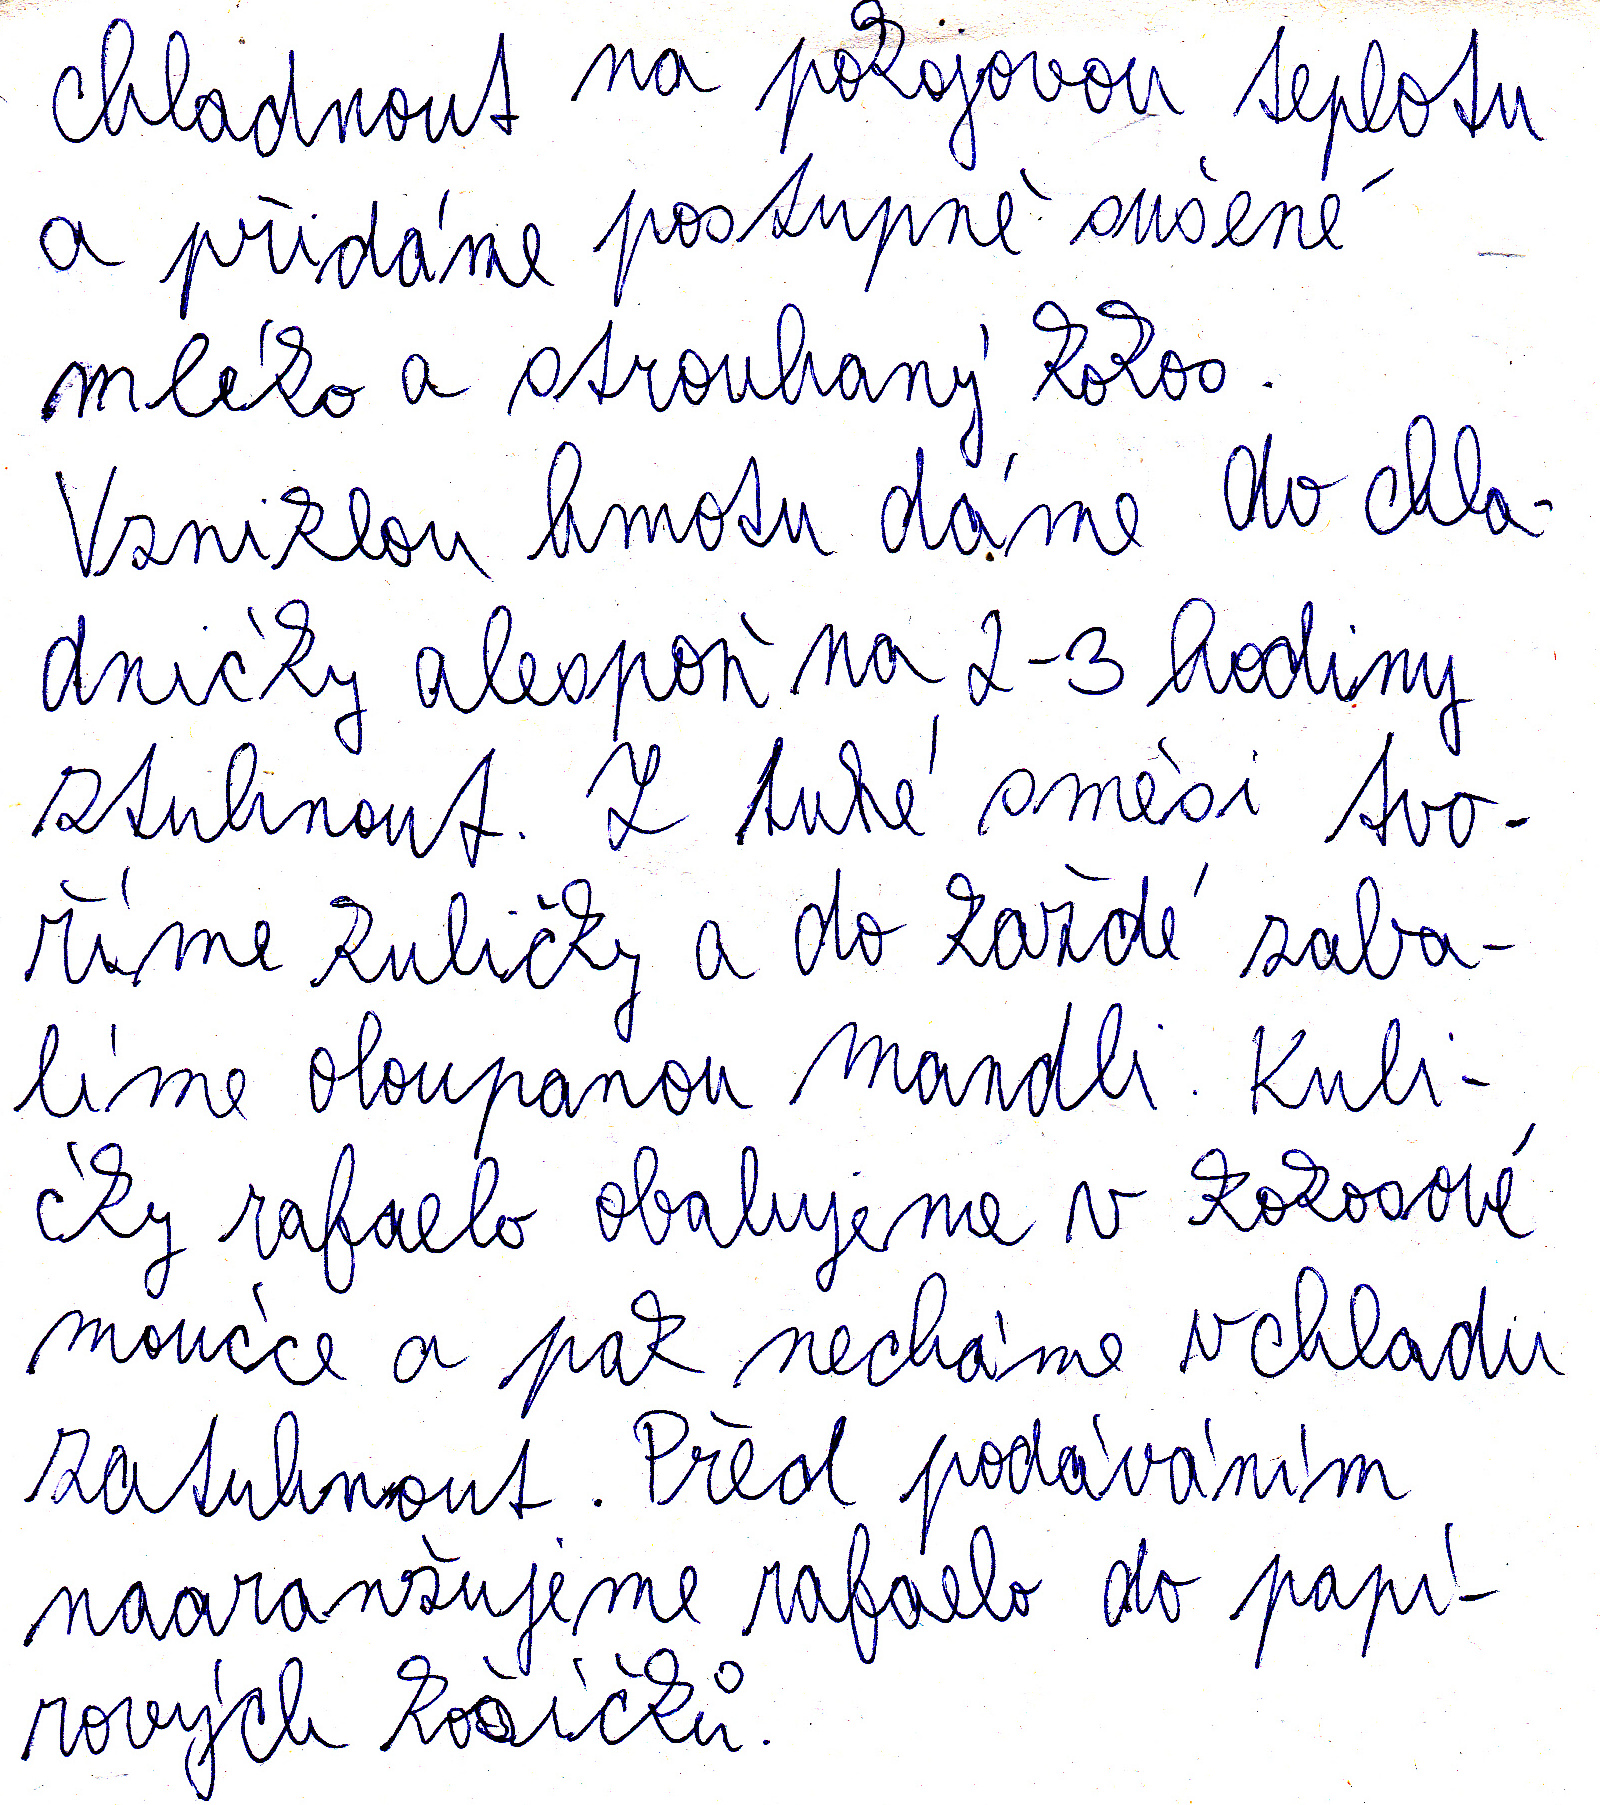 chladnout na pokojovou teplotu
a přidáme postupně sušené
mléko a strouhaný kokos.
Vzniklou hmotu dáme do chla-
dničky alespoň na 2-3 hodiny
ztuhnout. Z tuhé směsi tvo-
říme kuličky a do každé zaba-
líme oloupanou mandli. Kuli-
čky rafaelo obalujeme v kokosové
moučce a pak necháme v chladu
zatuhnout. Před podáváním
naaranžujeme rafaelo do papí-
rových košíčků.